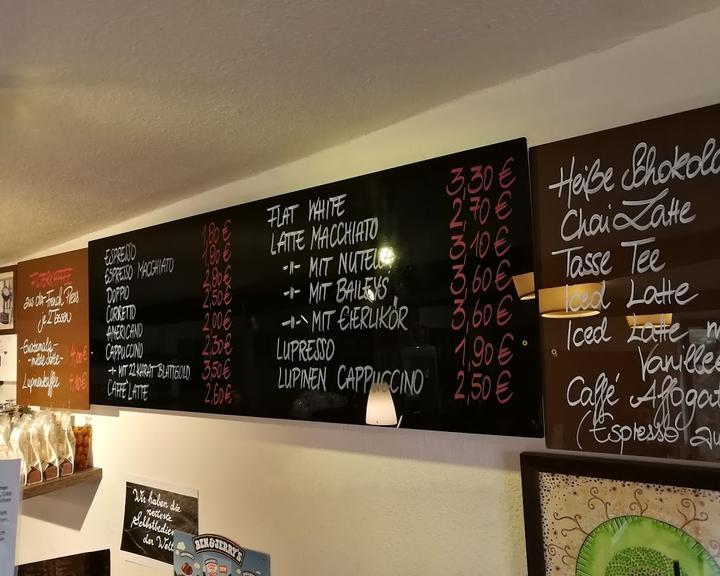 FILTERKAFFEE
aus der French Press
je 2 Tassen
Guatemala-
-milde Sorte- 4,00€
Lupinenkaffee 4,10€
ESPRESSO 1,80 €
ESPRESSO MACCHIATO 1,90 €
DOPPIO 2,80 €
CORNETTO 2,50 €
AMERICANO 2,00 €
CAPPUCCINO 2,30 €
-"- MIT 22 KARAT BLATTGOLD 3,50 €
CAFFÈ LATTE 2,60 €
FLAT WHITE 3,30 €
LATTE MACCHIATO 2,70 €
-"- MIT NUTELLA 3,10 €
-"- MIT BAILEYS 3,60 €
-"- MIT EIERLIKÖR 3,60 €
LUPRESSO 1,90 €
LUPINEN CAPPUCCINO 2,50 €
Heiße Schokola
Chai Latte
Tasse Tee
Iced Latte
Iced Latte m
Vanillee
Caffé Affogat
(Espresso au
Wir haben die
netteste
Selbstbedie
der Welt
BEN & JERRY'S